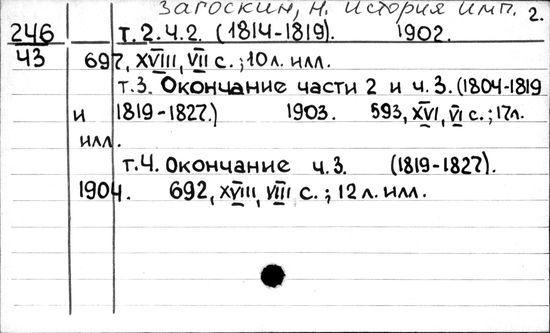 Загоскин, Н. История Имп. 2.
246 т.2.ч.2. (1814-1819). 1902.
43 697, XVIII, VII с.; 10 л. илл.
т.3. Окончание части 2 и ч.3. (1804-1819
и 1819-1827.) 1903. 593, XVI, VI с.; 17л.
илл.
т.4. Окончание ч.3. (1819-1827).
1904. 692, XVIII, VIII с.; 12 л. илл.